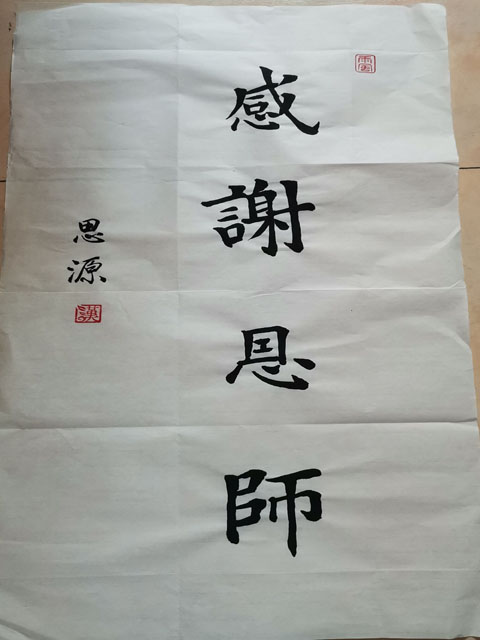 感謝恩師
思源